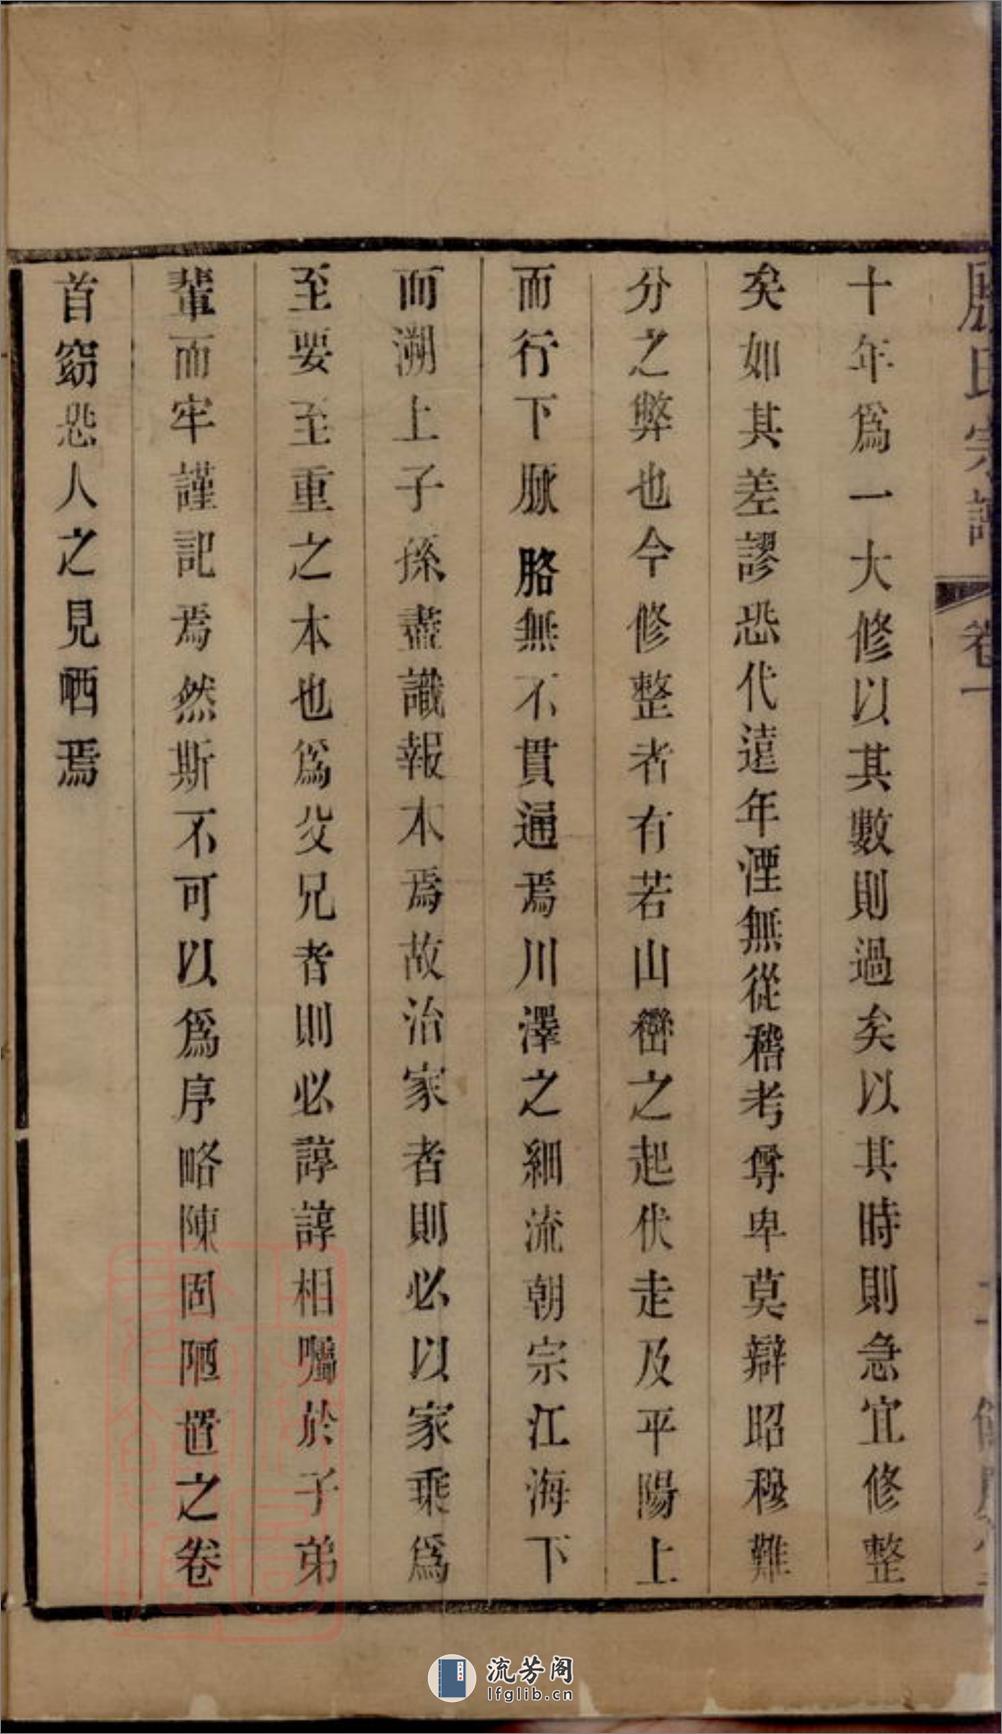 氏宗譜 卷一
十年爲一大修以其數則過矣以其時則急宜修整
矣如其差謬恐代遠年湮無從稽考尊卑莫辯昭穆難
分之弊也今修整者有若山巒之起伏走及平陽上
而行下脉胳無不貫通焉川澤之細流朝宗江海下
而溯上子孫盡識報本焉故治家者則必以家乘爲
至要至重之本也爲父兄者則必諄諄相囑於子弟
輩而牢謹記焉然斯不可以爲序略陳固陋置之卷
首竊恐人之見哂焉
流芳阁
lfglib.cn